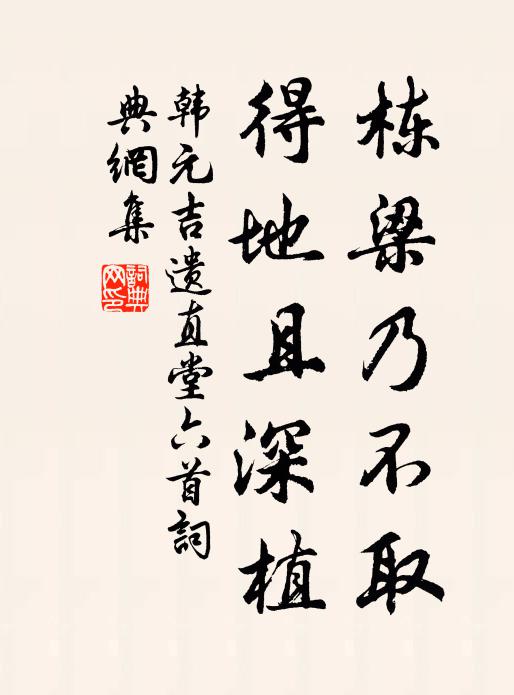 栋梁乃不取
得地且深植
韩元吉遗直堂六首詞
典網集
詞典
网印